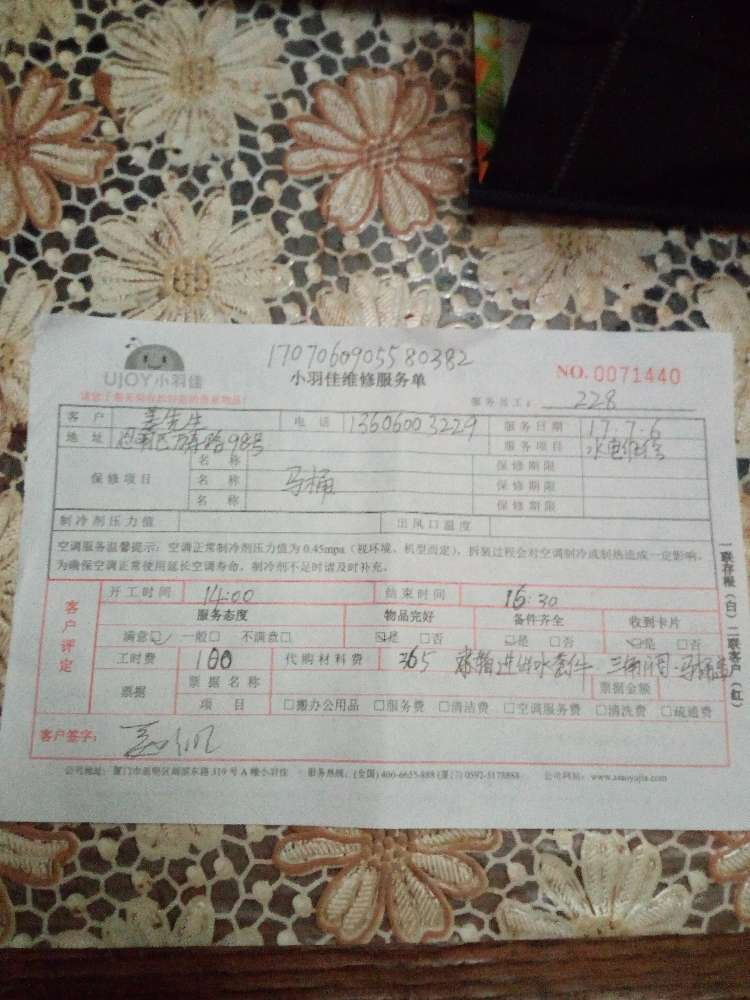 1707060905580382
UJOY小羽佳
小羽佳维修服务单
NO.0071440
服务员工: 228
客户 姜先生 电话 13606003229 服务日期 17.7.6
地址 思明区 98号 服务项目 水电维修
保修项目 名称 马桶 保修期限
名称 保修期限
名称 保修期限
制冷剂压力值 出风口温度
空调服务温馨提示：空调正常制冷剂压力值为0.45mpa（视环境、机型而定），拆装过程会对空调制冷或制热造成一定影响，
为确保空调正常使用延长空调寿命，制冷剂不足时请及时补充。
客户评定
开工时间 14:00 结束时间 16:30
服务态度 物品完好 备件齐全 收到卡片
满意☑ 一般□ 不满意□ ☑是 □否 ☑是 □否 ☑是 □否
工时费 100 代购材料费 365 水箱进供水套件 三角阀 马桶盖
票据 票据名称 票据金额
项目 □搬办公用品 □服务费 □清洁费 □空调服务费 □清洗费 □疏通费
客户签字：
公司地址：厦门市思明区湖滨东路319号A楼小羽佳 服务热线：(全国)400-6655-888 (厦门)0592-5178888 公司网站：www.xiaoyujia.com
一联存根（白）二联客户（红）